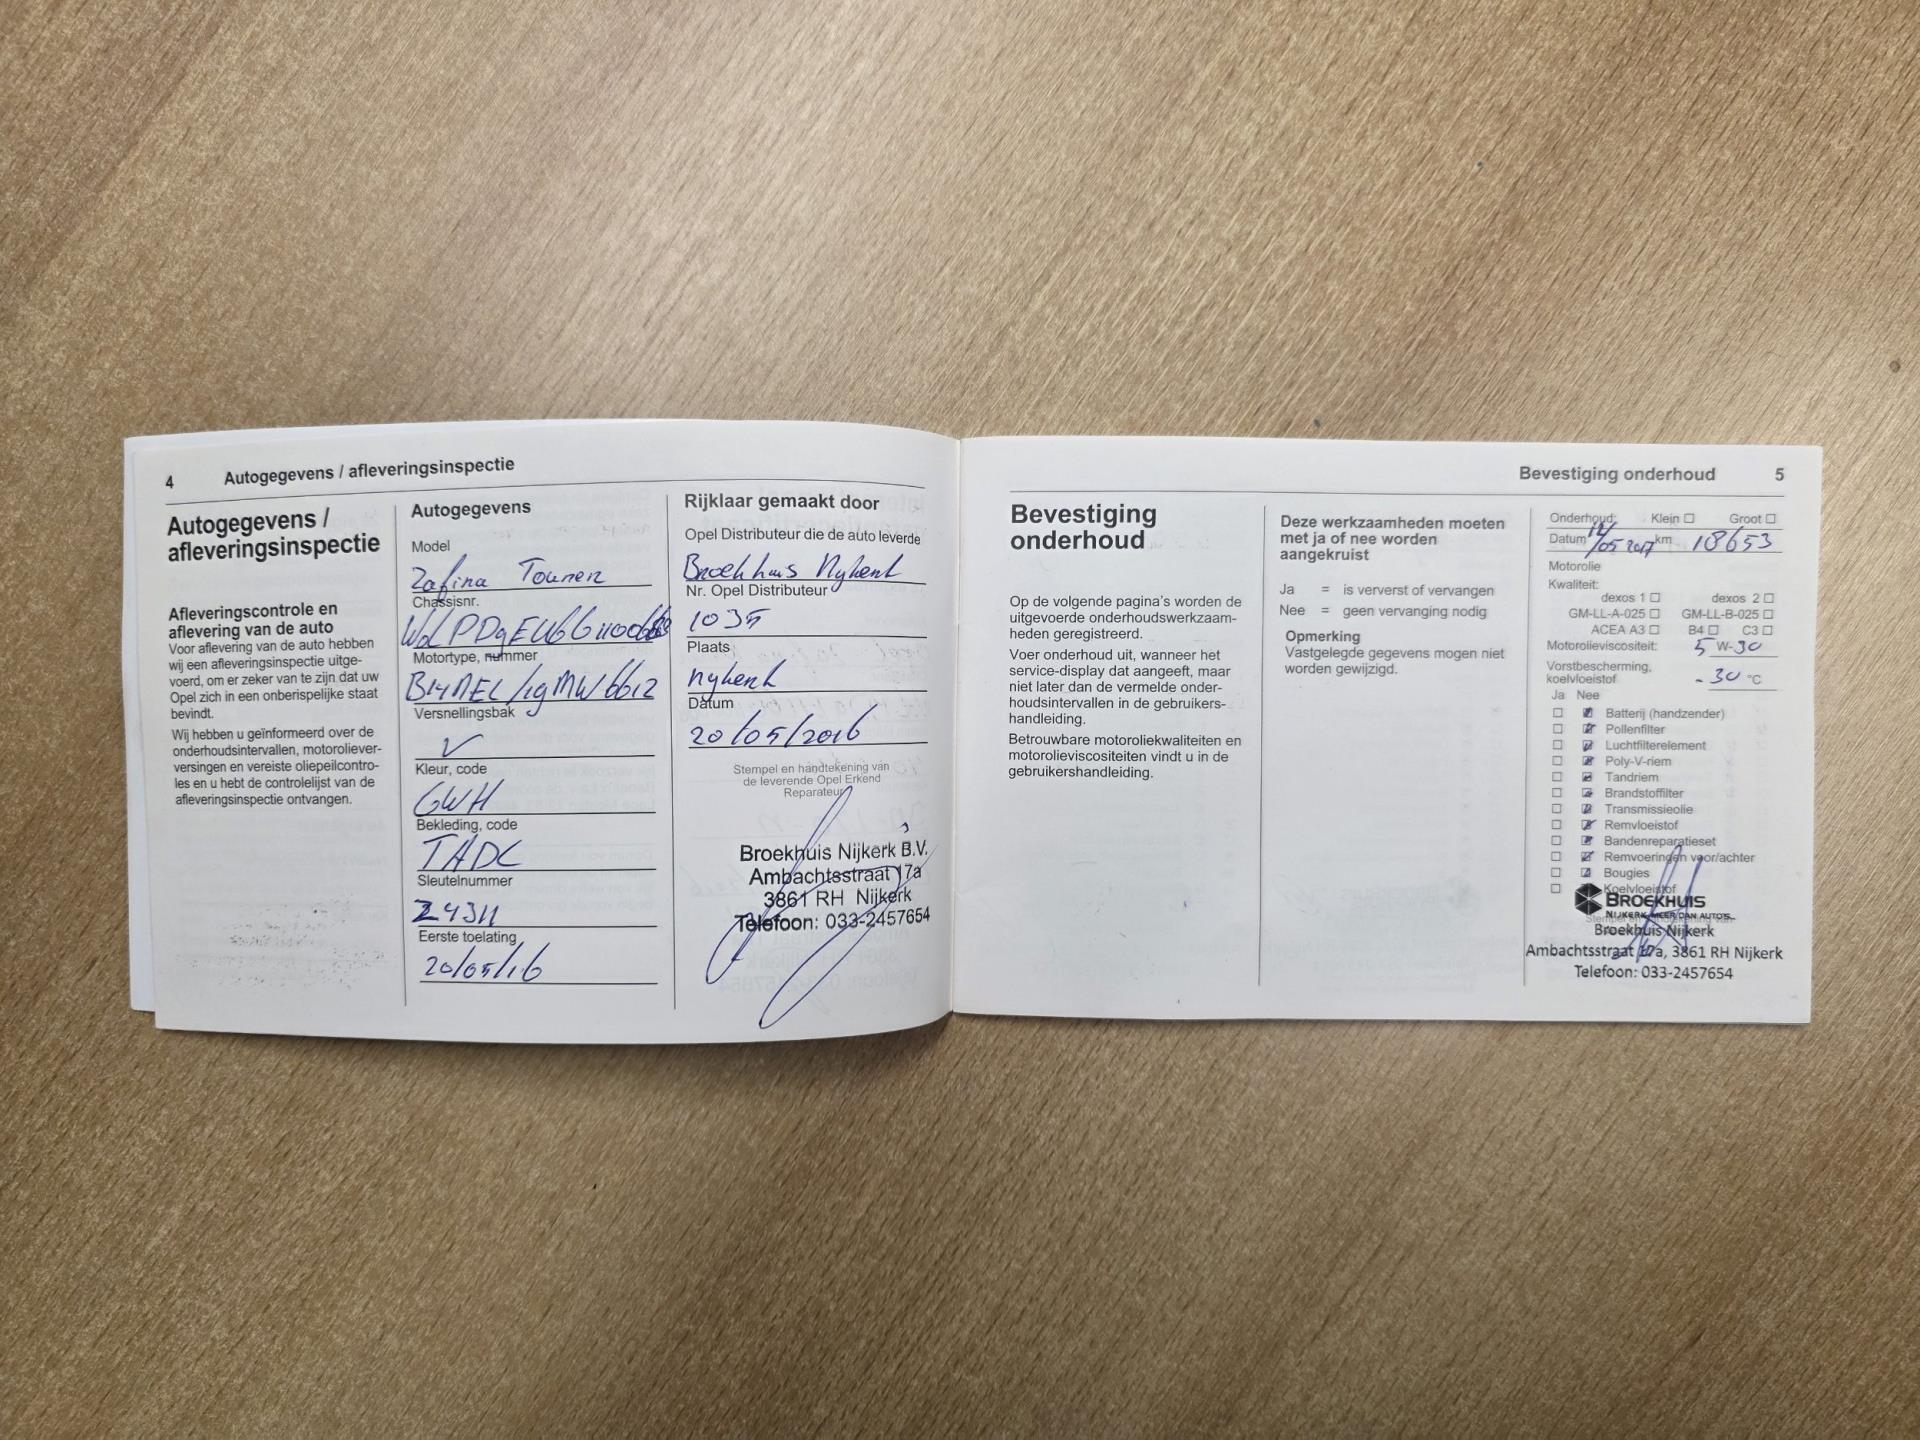 4 Autogegevens / afleveringsinspectie
Autogegevens /
afleveringsinspectie
Afleveringscontrole en
aflevering van de auto
Voor aflevering van de auto hebben
wij een afleveringsinspectie uitge-
voerd, om er zeker van te zijn dat uw
Opel zich in een onberispelijke staat
bevindt.
Wij hebben u geïnformeerd over de
onderhoudsintervallen, motoroliever-
versingen en vereiste oliepeilcontro-
les en u hebt de controlelijst van de
afleveringsinspectie ontvangen.
Autogegevens
Model
Zafira Tourer
Chassisnr.
Motortype, nummer
Versnellingsbak
V
Kleur, code
GWH
Bekleding, code
TADC
Sleutelnummer
Eerste toelating
20/05/16
Rijklaar gemaakt door
Opel Distributeur die de auto leverde
Broekhuis Nykerk
Nr. Opel Distributeur
1035
Plaats
Nykerk
Datum
20/05/2016
Stempel en handtekening van
de leverende Opel Erkend
Reparateur
Broekhuis Nijkerk B.V.
Ambachtsstraat 17a
3861 RH Nijkerk
Telefoon: 033-2457654
Bevestiging onderhoud 5
Bevestiging
onderhoud
Op de volgende pagina's worden de
uitgevoerde onderhoudswerkzaam-
heden geregistreerd.
Voer onderhoud uit, wanneer het
service-display dat aangeeft, maar
niet later dan de vermelde onder-
houdsintervallen in de gebruikers-
handleiding.
Betrouwbare motoroliekwaliteiten en
motorolieviscositeiten vindt u in de
gebruikershandleiding.
Deze werkzaamheden moeten
met ja of nee worden
aangekruist
Ja = is ververst of vervangen
Nee = geen vervanging nodig
Opmerking
Vastgelegde gegevens mogen niet
worden gewijzigd.
Onderhoud: Klein Groot
Datum /05 2017 km 18653
Motorolie
Kwaliteit:
dexos 1 dexos 2
GM-LL-A-025 GM-LL-B-025
ACEA A3 B4 C3
Motorolieviscositeit: 5 W-30
Vorstbescherming,
koelvloeistof -30 °C
Ja Nee
Batterij (handzender)
Pollenfilter
Luchtfilterelement
Poly-V-riem
Tandriem
Brandstoffilter
Transmissieolie
Remvloeistof
Bandenreparatieset
Remvoeringen voor/achter
Bougies
Koelvloeistof
BROEKHUIS
NIJKERK MEER DAN AUTO'S...
Broekhuis Nijkerk
Ambachtsstraat 17a, 3861 RH Nijkerk
Telefoon: 033-2457654